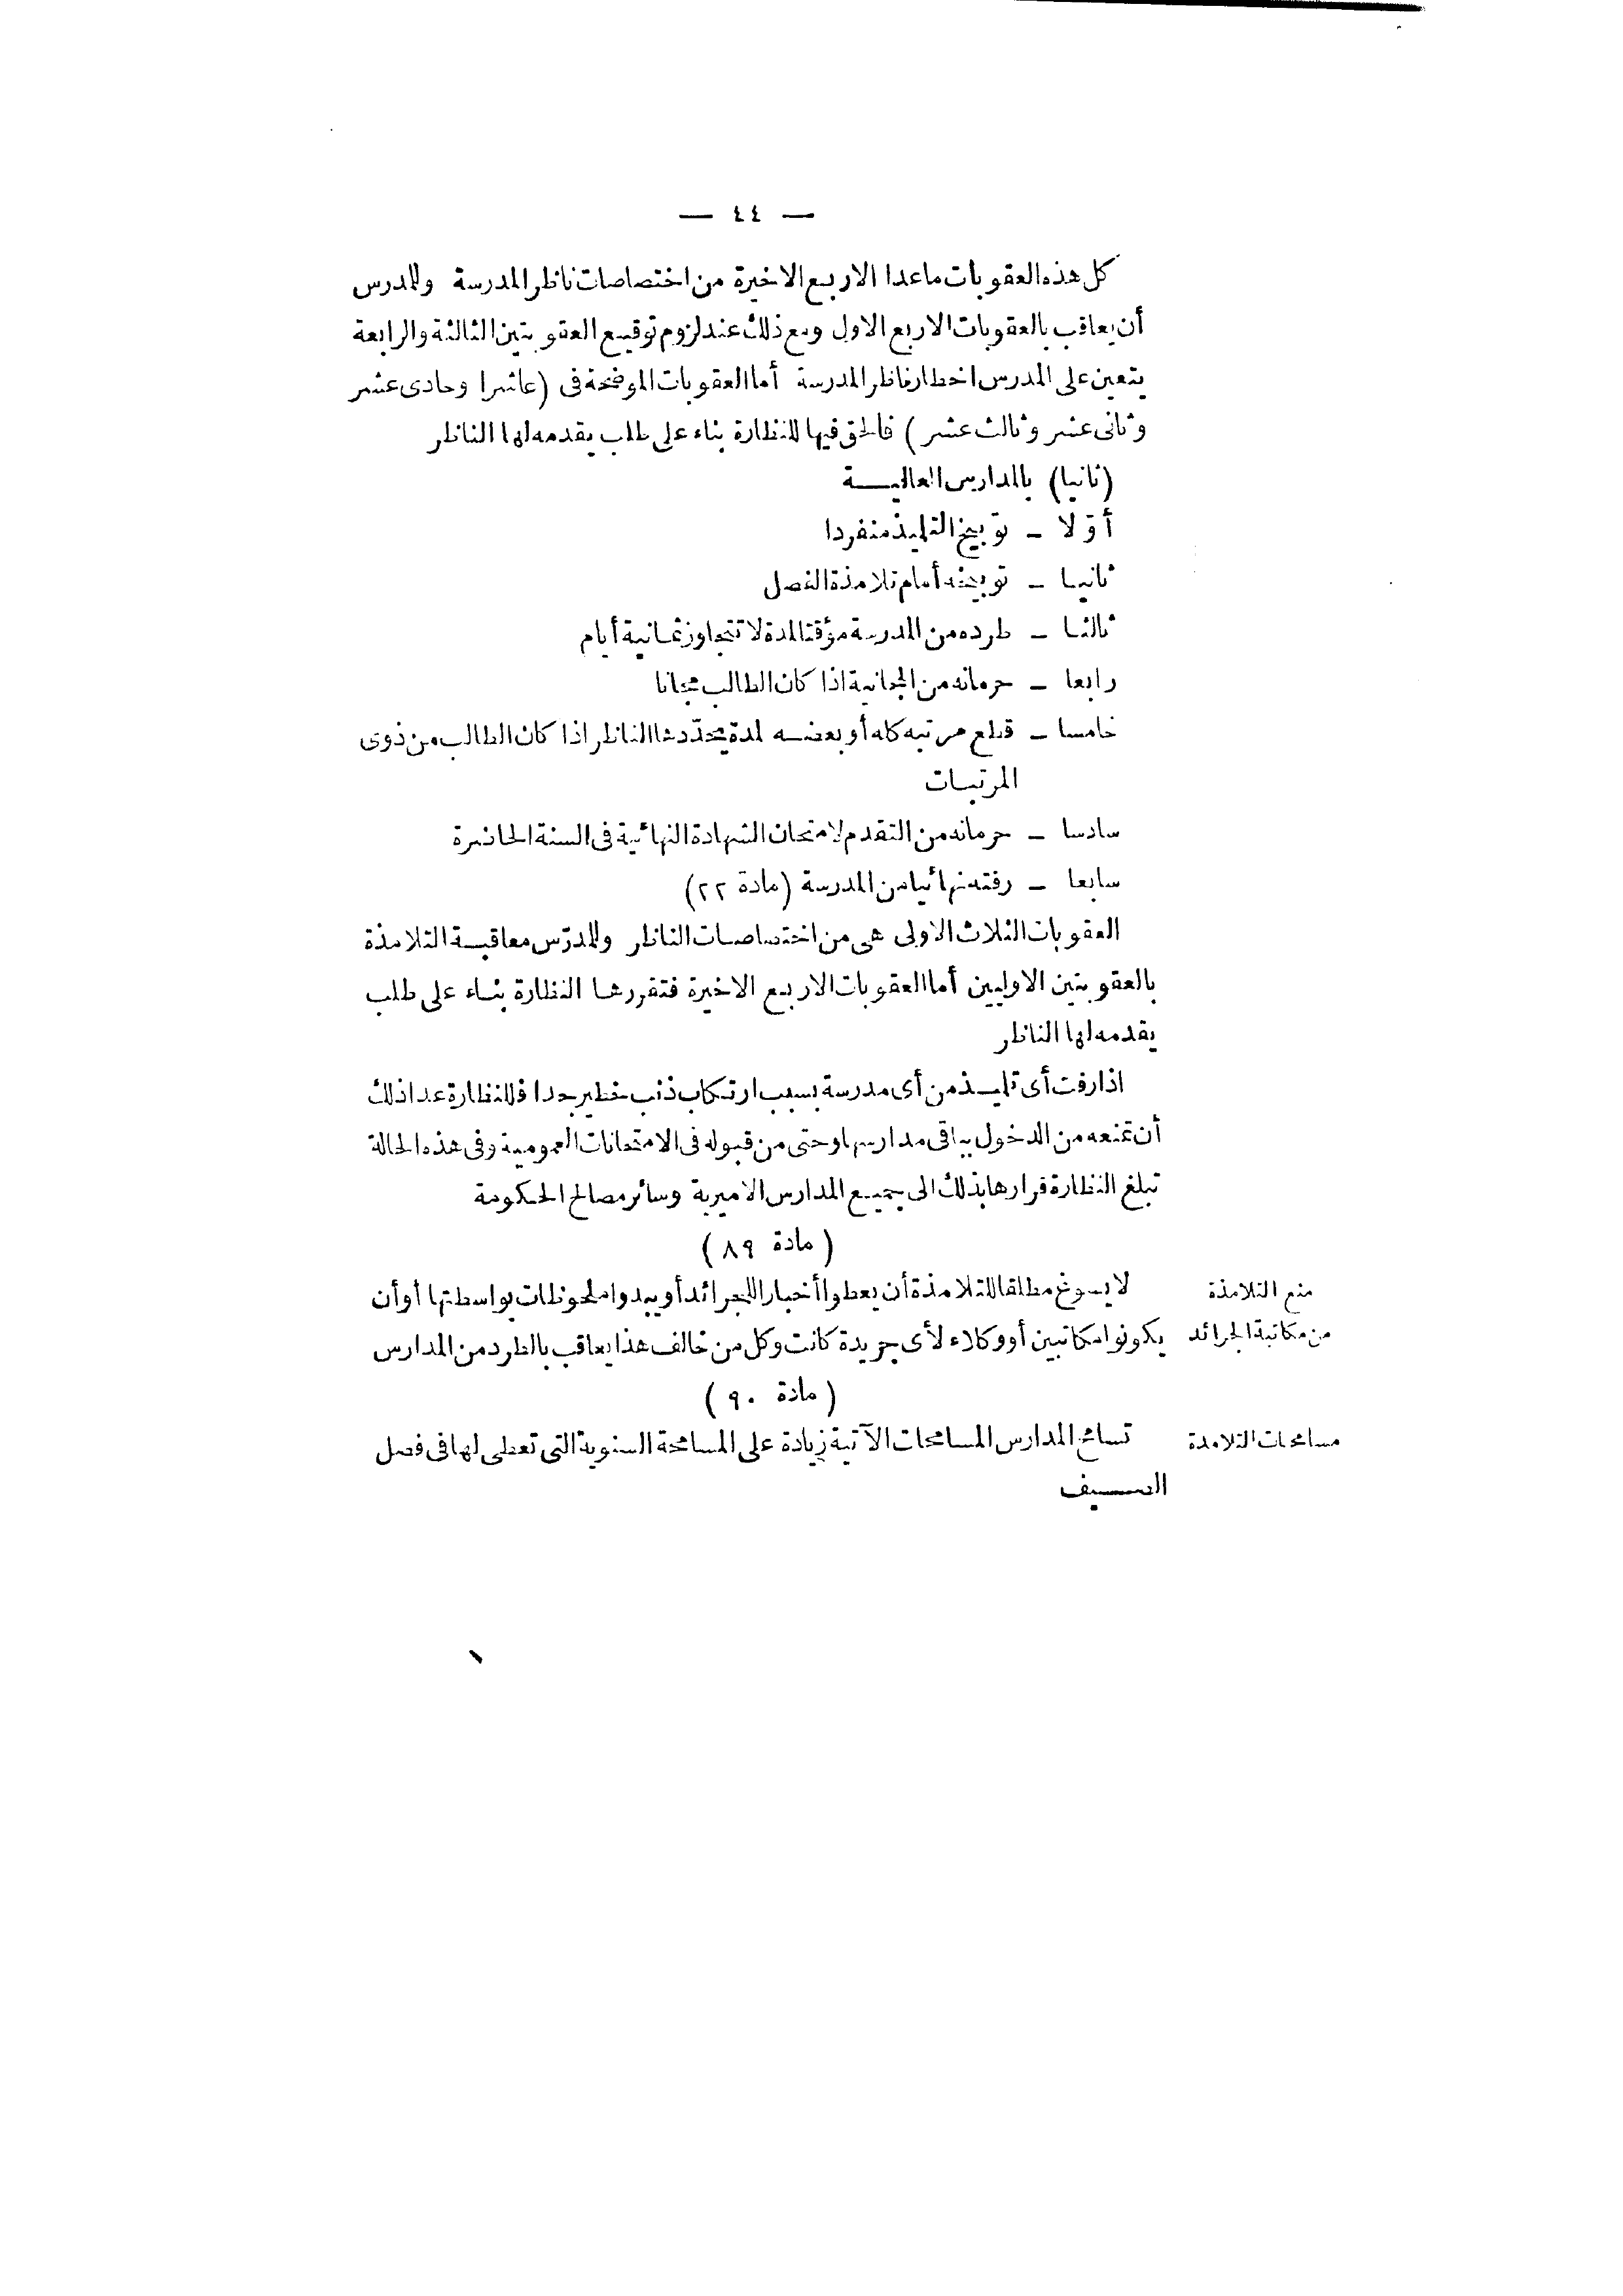 — ٤٤ —
كل هذه العقوبات ماعدا الاربع الاخيرة من اختصاصات ناظر المدرسة وللمدرس
أن يعاقب بالعقوبات الاربع الاول ومع ذلك عند لزوم توقيع العقوبتين الثالثة والرابعة
يتعين على المدرس اخطار ناظر المدرسة أما العقوبات الموضحة فى (عاشرا وحادى عشر
وثانى عشر وثالث عشر) فالحق فيها للنظارة بناء على طلب يقدمه لها الناظر
(ثانيا) بالمدارس العالية
أوّلا - توبيخ التلميذ منفردا
ثانيا - توبيخه أمام تلامذة الفصل
ثالثا - طرده من المدرسة مؤقتا لمدة لا تتجاوز ثمانية أيام
رابعا - حرمانه من المجانية اذا كان الطالب مجانا
خامسا - قطع مرتبه كله أو بعضه لمدة يحدّدها الناظر اذا كان الطالب من ذوى
المرتبات
سادسا - حرمانه من التقدم لامتحان الشهادة النهائية فى السنة الحاضرة
سابعا - رفته نهائيا من المدرسة (مادة ٢٢)
العقوبات الثلاث الاولى هى من اختصاصات الناظر وللمدرّس معاقبة التلامذة
بالعقوبتين الاوليين أما العقوبات الاربع الاخيرة فتقررها النظارة بناء على طلب
يقدمه لها الناظر
اذا رفت أى تلميذ من أى مدرسة بسبب ارتكاب ذنب خطير جدا فللنظارة عدا ذلك
أن تمنعه من الدخول بباقى مدارسها وحتى من قبوله فى الامتحانات العمومية وفى هذه الحالة
تبلغ النظارة قرارها بذلك الى جميع المدارس الاميرية وسائر مصالح الحكومة
(مادة ٨٩)
منع التلامذة
من مكاتبة الجرائد
لا يسوغ مطلقا للتلامذة أن يعطوا أخبارا للجرائد أو يبدوا ملحوظات بواسطتها أو أن
يكونوا مكاتبين أو وكلاء لأى جريدة كانت وكل من خالف هذا يعاقب بالطرد من المدارس
(مادة ٩٠)
مسامحات التلامذة
تسامح المدارس المسامحات الآتية زيادة على المسامحة السنوية التى تعطى لها فى فصل
الصيف